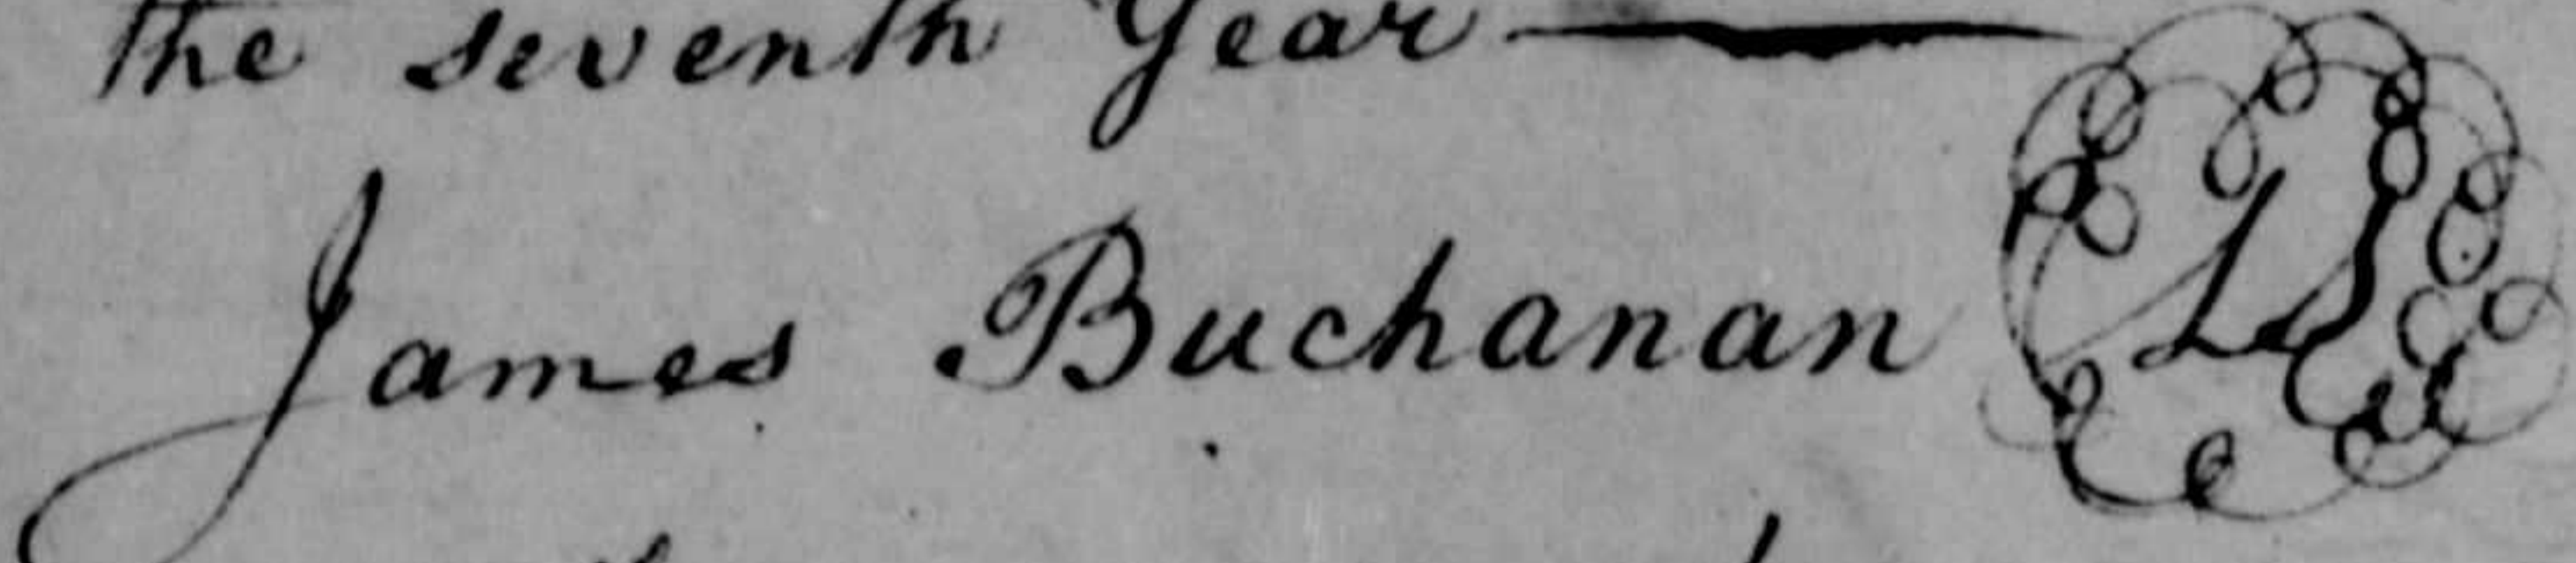 the seventh Year —
James Buchanan LS